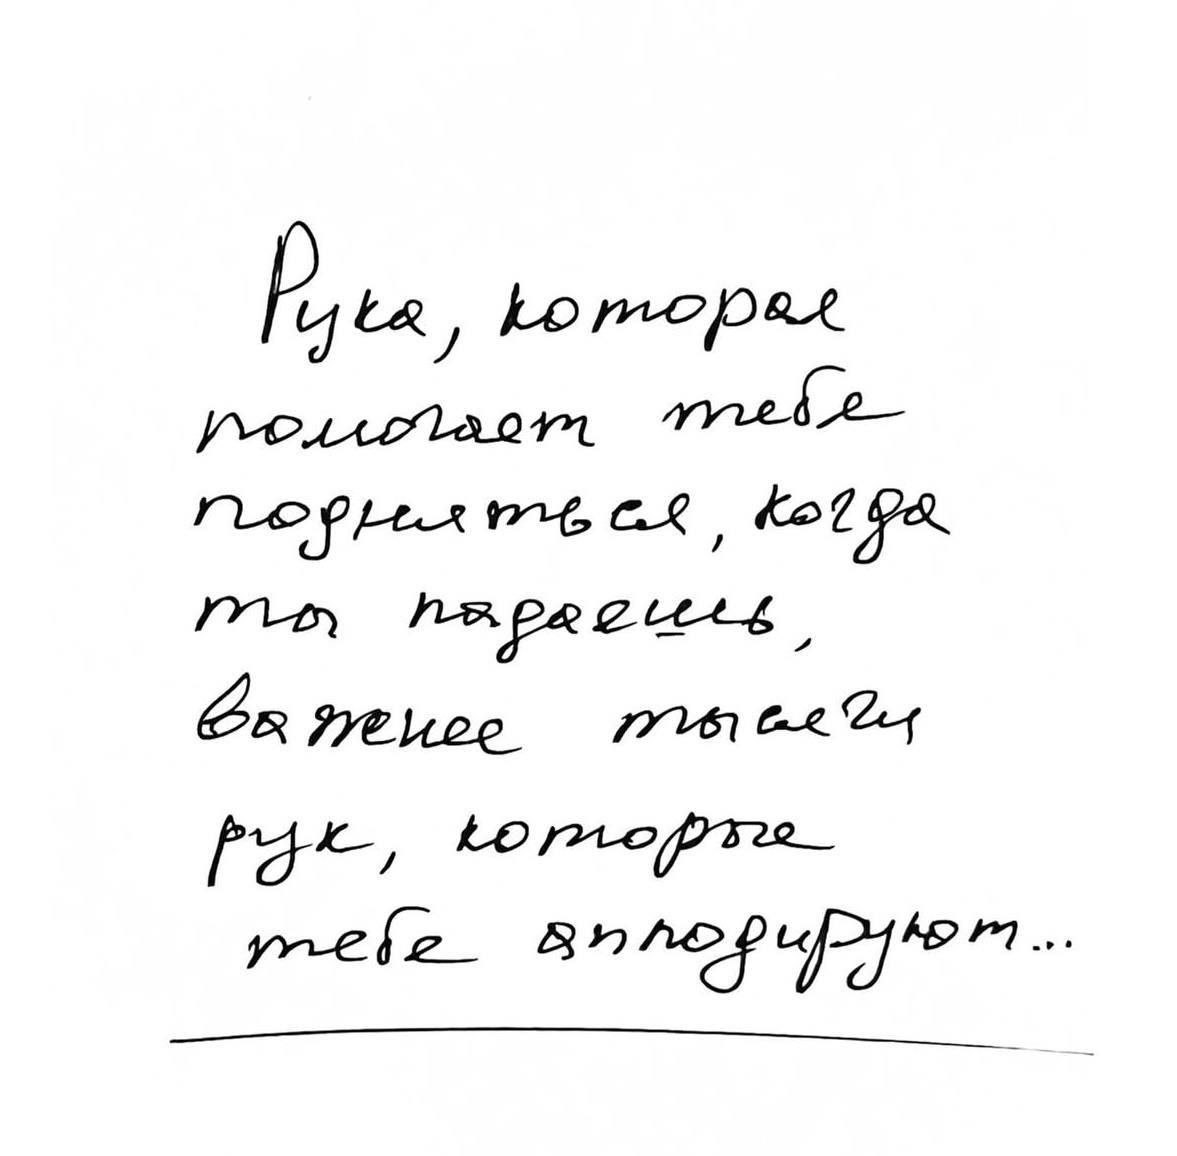 Рука, которая
помогает тебе
подняться, когда
ты падаешь,
важнее тысячи
рук, которые
тебе апплодируют...